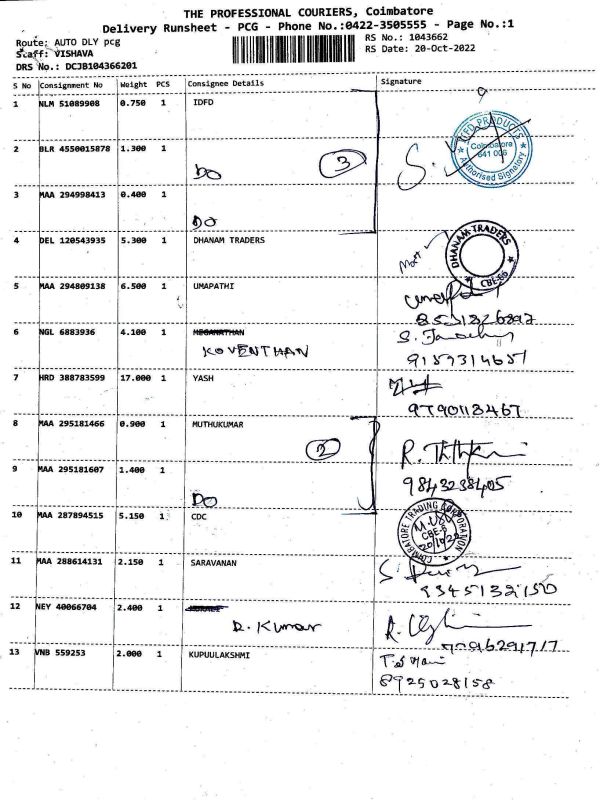 THE PROFESSIONAL COURIERS, Coimbatore
Delivery Runsheet - PCG - Phone No.:0422-3505555 - Page No.:1
Route: AUTO DLY pcg
Staff: VISHAVA
DRS No.: DCJB104366201
RS No.: 1043662
RS Date: 20-Oct-2022
S No Consignment No Weight PCS Consignee Details Signature
1 NLM 51089908 0.750 1 IDFD
2 BLR 4550015878 1.300 1
DO
3
S.
IFD PRODUCTS
Coimbatore
641 006
Authorised Signatory
3 MAA 294998413 0.400 1
DO
4 DEL 120543935 5.300 1 DHANAM TRADERS
DHANAM TRADERS
CBE-66
5 MAA 294809138 6.500 1 UMAPATHI
8531826897
6 NGL 6883936 4.100 1 MEGANATHAN
KOVENTHAN
9159314657
7 HRD 388783599 17.000 1 YASH
9790113467
8 MAA 295181466 0.900 1 MUTHUKUMAR
2
9 MAA 295181607 1.400 1
DO
9843238405
10 MAA 287894515 5.150 1 CDC
COIMBATORE TRADING CORPORATION
11 MAA 288614131 2.150 1 SARAVANAN
9345132150
12 NEY 40066704 2.400 1
R. Kumar
13 VNB 559253 2.000 1 KUPUULAKSHMI
8925028158